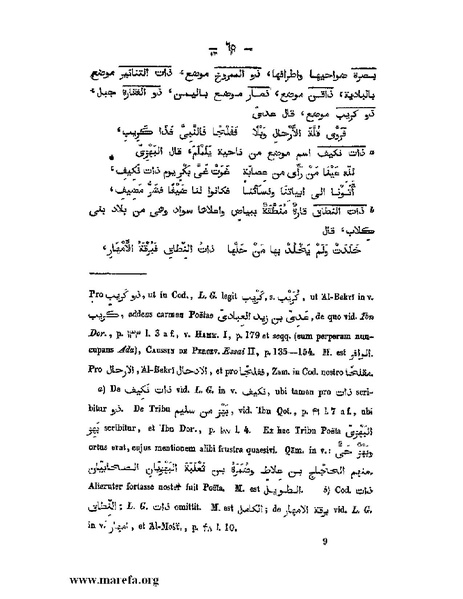 — ٦٥ —
بصرة ضواحيها واطرافها، ذو السروح موضع، ذات التنانير موضع
بالبادية، ذاقن موضع، نصار موضع باليمن، ذو الفقارة جبل،
ذو كريب موضع، قال عدى
فَلْجًا فَالنَّبِىَّ فَذَا كَرِيبِ،
ذات نكيف اسم موضع من ناحية يَلَمْلَم، قال البَهْزِىّ
لله عَيْنَا مَنْ رَأَى من عِصَابَة غَوَتْ غَىَّ بَكْرٍ يوم ذات نَكِيف،
أَتَوْنا الى ابياتنا ونسآئنا فكانوا لنا ضَيْفًا فشَرَّ مَضِيف،
ذات النطاق قارة مُنطَّقة ببياض واعلاها سواد وهى من بلاد بنى
كلاب، قال
خَلَدَتْ وَلَمْ يَخْلُدْ بها مَنْ حَلَّها ذاتُ النِّطاق فبُرْقَةُ الأَمْهارِ،
Pro ذو كريب, ut in Cod., L. G. legit كريب, s. كُرَيْب, ut Al-Bekrî in v.
كريب, addens carmen Poëtae عدى بن زيد العبادى, de quo vid. Ibn
Dor., p. l. 3 a f., v. HAMM. I, p. 179 et seqq. (eum perperam nun-
cupans Adu), CAUSSIN DE PERCEV. Essai II, p. 135—154. M. est الوافر.
Pro الارحال, Al-Bekrî الادحال, et pro فلجا, Zam. in Cod. nostro
a) De ذات نكيف vid. L. G. in v. نكيف, ubi tamen pro ذات scri-
bitur ذو. De Tribu بَهْز من سليم vid. Ibn Qot., p. ٤١ l. 7 a f., ubi
بهز scribitur, et Ibn Dor., p. l. 4. Ex hac Tribu Poëta البَهْزِىّ
ortus erat, cujus mentionem alibi frustra quaesivi. Qâm. in v.: وبَهْز حَىّ
منهم الحجاج بن علاط وضَمْرَة بن ثعلبة البَهْزِيّان الصحابيّان.
Alteruter fortasse noster fuit Poëta. M. est الطويل. b) Cod. ذات
النطاق; L. G. ذات omittit. M. est الكامل; de برقة الامهار vid. L. G.
in v. امهار, et Al-Mośt., p. ٤٨ l. 10.
9
www.marefa.org